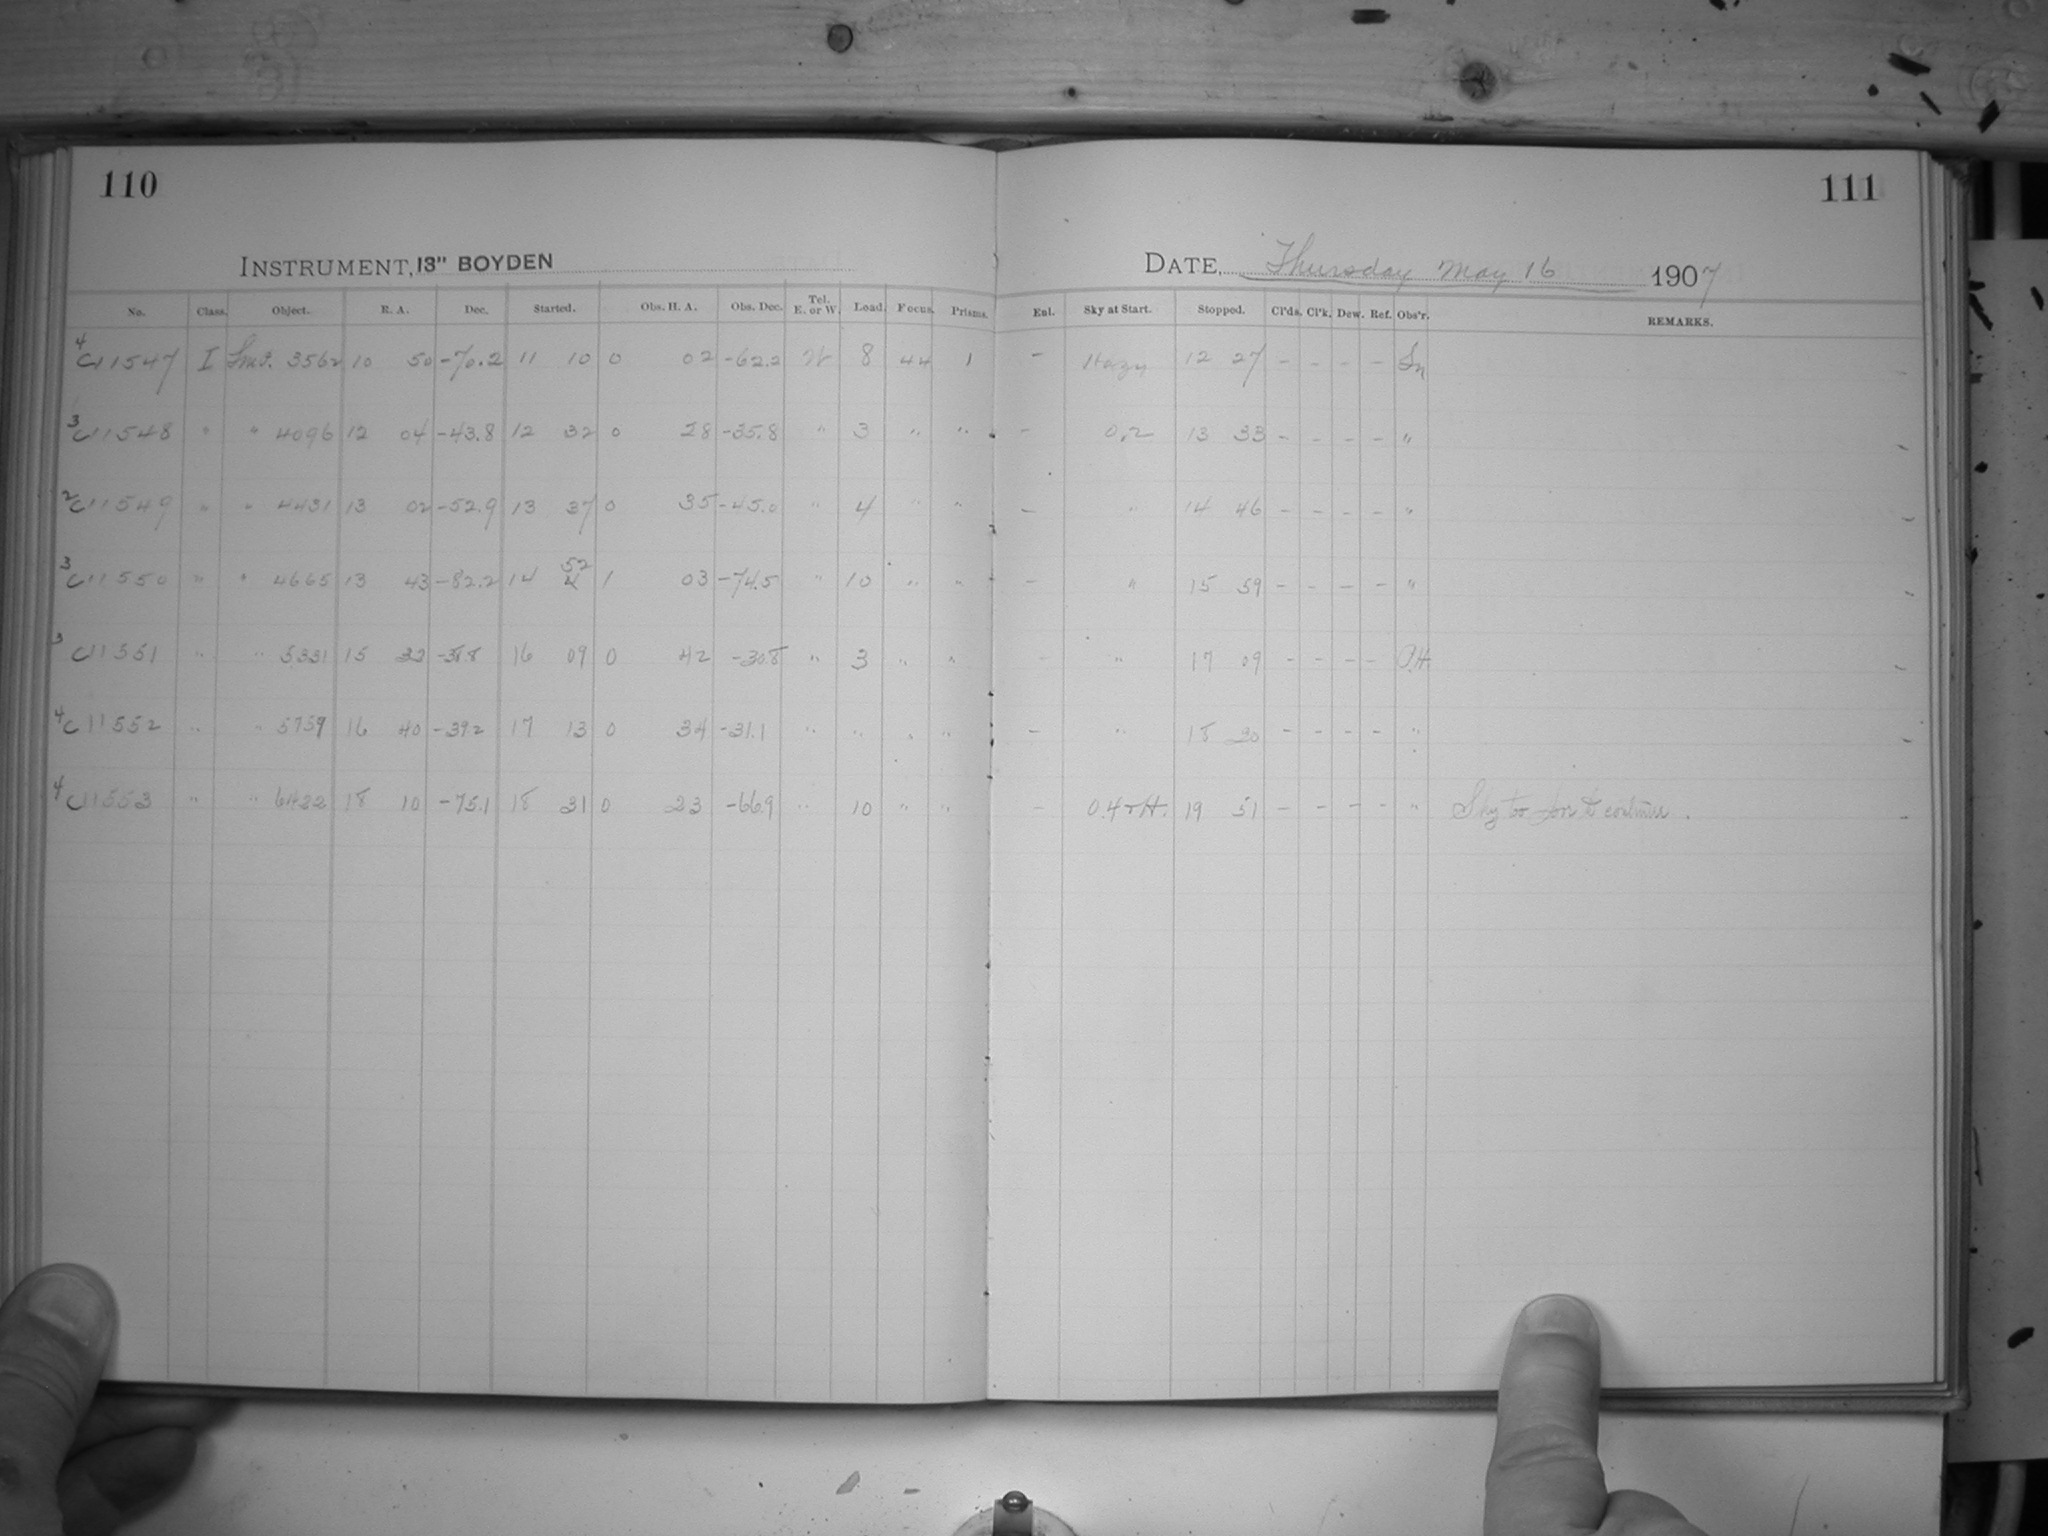 110
INSTRUMENT, 13" BOYDEN
No. Class. Object. R. A. Dec. Started. Obs. H. A. Obs. Dec. Tel. E. or W. Load. Focus. Prisms.
4 C11547 I 3562 10 50 -70.2 11 10 0 02 -62.2 W 8 44 1
3 C11548 " " 4096 12 04 -43.8 12 32 0 28 -35.8 " 3 " "
2 C11549 " " 4431 13 02 -52.9 13 37 0 35 -45.0 " 4 " "
3 C11550 " " 4665 13 43 -82.2 14 52 1 03 -74.5 " 10 " "
3 C11551 " " 5331 15 16 09 0 42 -30.8 " 3 " "
4 C11552 " " 5759 16 40 -39.2 17 13 0 34 -31.1 " " " "
4 C11553 " " 6422 18 10 -75.1 18 31 0 23 -66.9 " 10 " "
111
DATE, Thursday May 16 1907
Enl. Sky at Start. Stopped. Cl'ds. Cl'k. Dew. Ref. Obs'r. REMARKS.
- Hazy 12 27 - - - -
- 0.2 13 33 - - - - "
- " 14 46 - - - - "
- " 15 59 - - - - "
- " 17 09 - - - -
- " 18 20 - - - - "
- 0.4 + H. 19 51 - - - - " Sky too poor to continue.